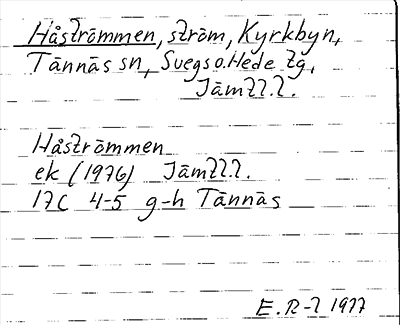 Håströmmen, ström, Kyrkbyn,
Tännäs sn, Svegs o. Hede tg,
Jämtl. l.
Håströmmen
ek (1976) Jämtl. l.
17C 4-5 g-h Tännäs
E. R-l 1977